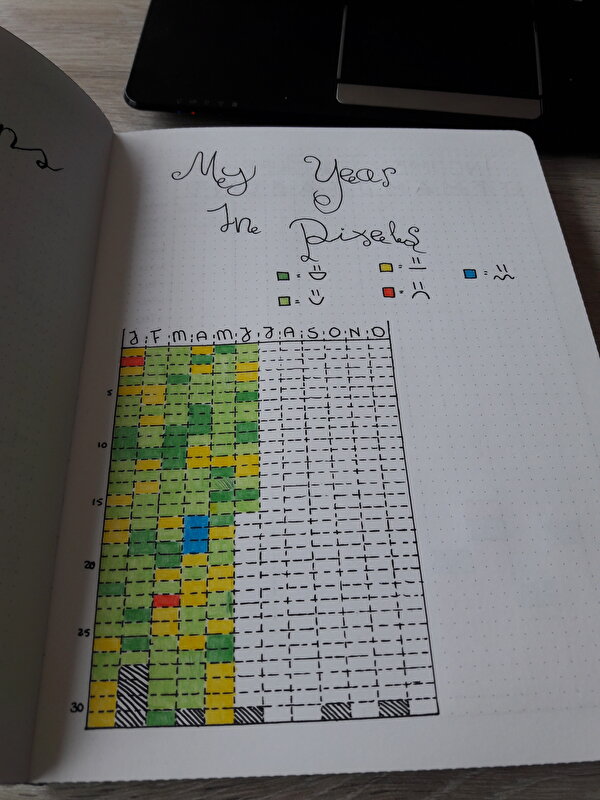 My Year
In Pixels
J F M A M J J A S O N D
5
10
15
20
25
30